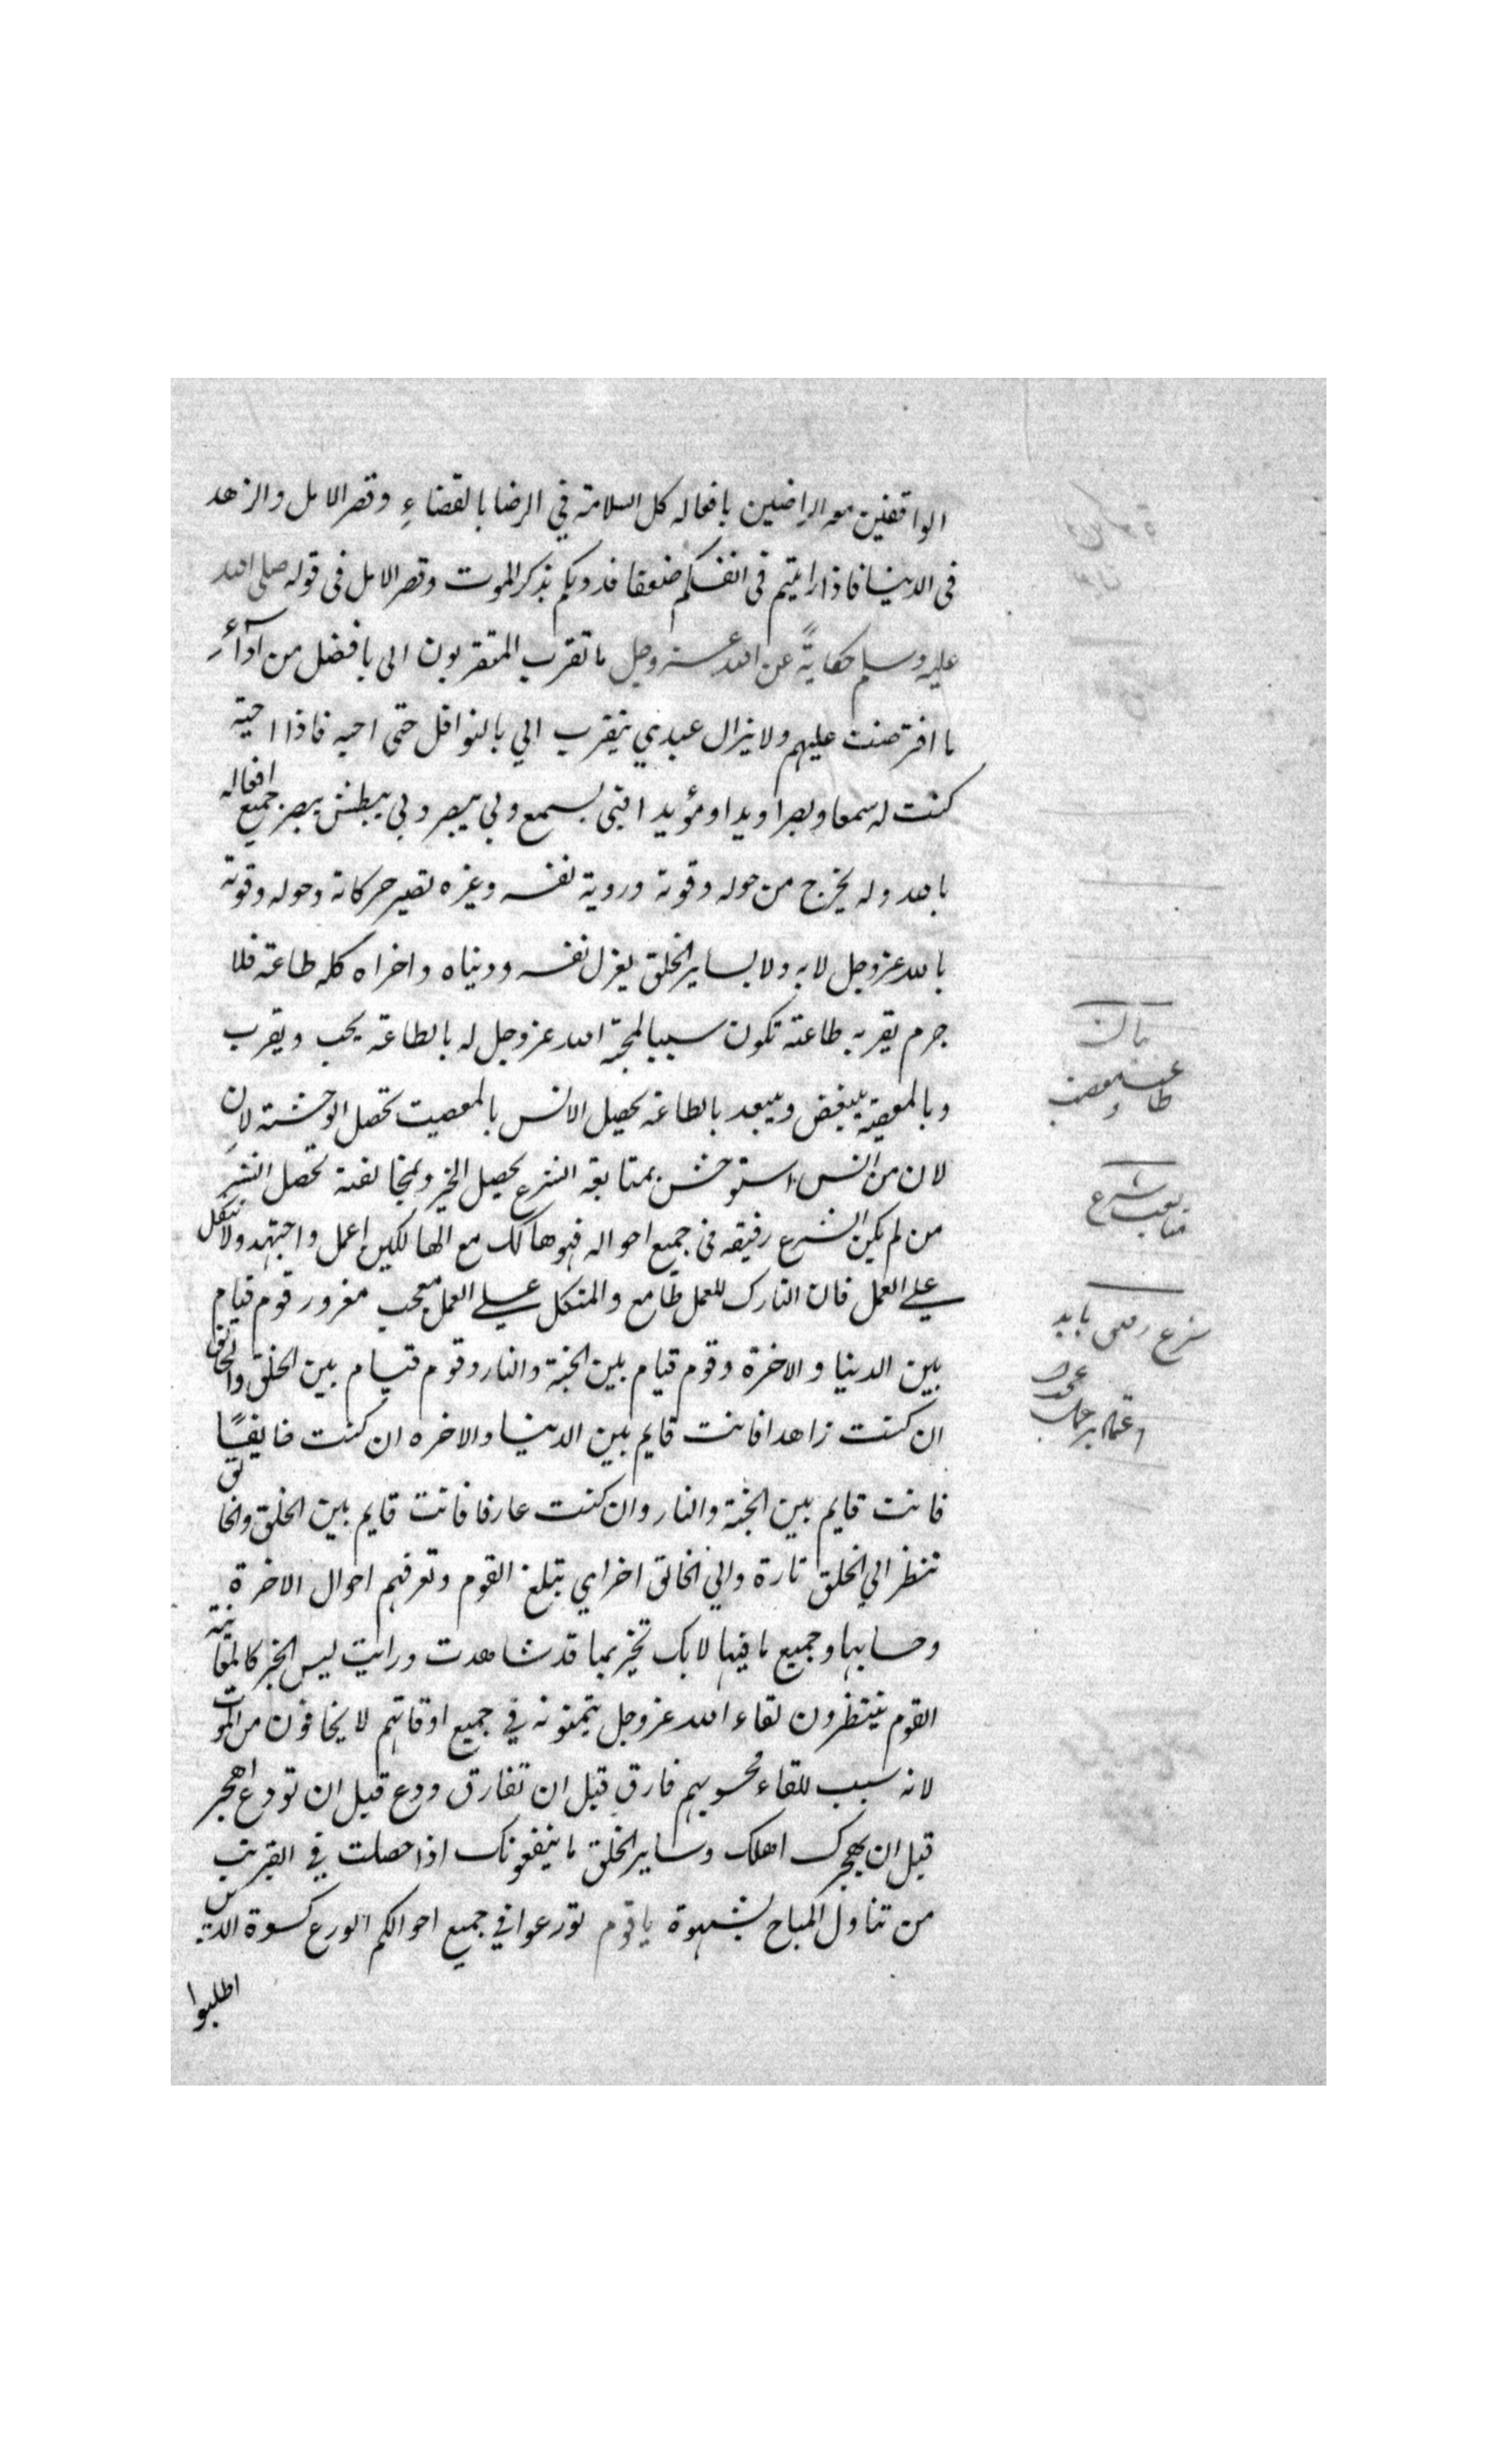 الواقفين معه الراضين بافعاله كل السلامة في الرضا بالقضاءِ وقصر الامل والزهد
فى الدنيا فاذا رايتم فى انفسكم ضعفا فدونكم بذكر الموت وقصر الامل فى قوله صلى الله
عليه وسلم حكايةً عن الله عز وجل ما تقرب المتقربون الى بافضل من اداءِ
ما افترضت عليهم ولا يزال عبدي يتقرب الي بالنوافل حتى احبه فاذا احبته
كنت له سمعا وبصرا ويدا ومؤيدا فبى يسمع وبي يبصر وبي يبطش يبصر جميع افعاله
بالله وله يخرج من حوله وقوته وروية نفسه وغيره تصير حركاته وحوله وقوته
بالله عز وجل لا به ولا بساير الخلق يعزل نفسه ودنياه واخراه كله طاعة فلا
جرم يقربه طاعته تكون سببا لمحبة الله عز وجل له بالطاعة يحب ويقرب
وبالمعصية يبغض ويبعد بالطاعة يحصل الانس بالمعصيت تحصل الوحشة لان
لان من انس استوحش بمتابعة الشرع يحصل الخير وبمخالفته تحصل الشر
من لم يكن الشرع رفيقه فى جميع احواله فهو هالك مع الهالكين اعمل واجتهد ولا تتكل
على العمل فان التارك للعمل طامع والمتكل على العمل معجب مغرور قوم قيام
بين الدنيا والاخرة وقوم قيام بين الجنة والنار وقوم قيام بين الخلق والخالق
ان كنت زاهدا فانت قايم بين الدنيا والاخره ان كنت خايفًا
فانت قايم بين الجنة والنار وان كنت عارفا فانت قايم بين الخلق والخالق
تنظر الي الخلق تارة والي الخالق اخراي تبلغ القوم وتعرفهم احوال الاخرة
وحسابها وجميع ما فيها لا بك تخبر بما قد شاهدت ورايت ليس الخبر كالمعاينة
القوم ينتظرون لقاء الله عز وجل يتمنونه في جميع اوقاتهم لا يخافون من الموت
لانه سبب للقاء محبوبهم فارق قبل ان تفارق ودع قبل ان تودع اهجر
قبل ان يهجرك اهلك وساير الخلق ما ينفعونك اذا حصلت في القبر تب
من تناول المباح بشهوة يا قوم تورعوا في جميع احوالكم الورع كسوة الدين
اطلبوا
بيان
طاعت و معصيت
متابعت شرع
شرع رفيق بايد
اعتماد بر عمل